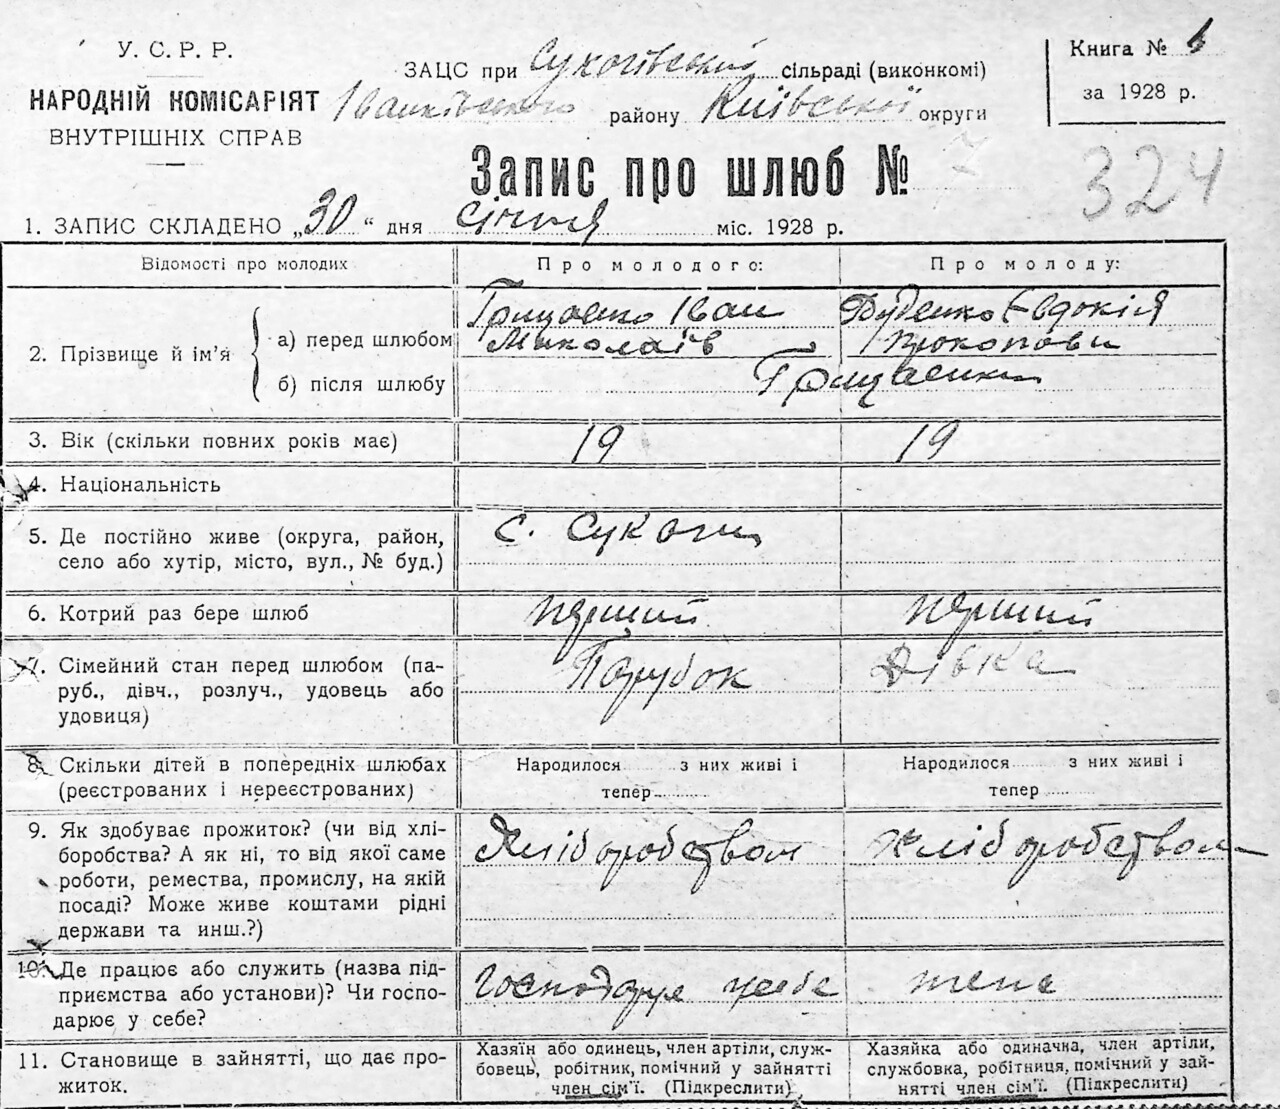 У. С. Р. Р.
НАРОДНІЙ КОМІСАРІЯТ
ВНУТРІШНІХ СПРАВ
ЗАЦС при Сукачівській сільраді (виконкомі)
Іванківського району Київської округи
Книга № 1
за 1928 р.
Запис про шлюб № 7
324
1. ЗАПИС СКЛАДЕНО „30“ дня січня міс. 1928 р.
Відомості про молодих Про молодого: Про молоду:
2. Прізвище й ім'я
а) перед шлюбом Грищенко Іван Миколаїв Буденко Євдокія Прокопови
б) після шлюбу Грищенки
3. Вік (скільки повних років має) 19 19
4. Національність
5. Де постійно живе (округа, район, село або хутір, місто, вул., № буд.) с. Сукачі
6. Котрий раз бере шлюб перший перший
7. Сімейний стан перед шлюбом (па-
руб., дівч., розлуч., удовець або
удовиця) Парубок Дівка
8. Скільки дітей в попередніх шлюбах
(реєстрованих і нереєстрованих)
Народилося з них живі і
тепер
Народилося з них живі і
тепер
9. Як здобуває прожиток? (чи від хлі-
боробства? А як ні, то від якої саме
роботи, ремества, промислу, на якій
посаді? Може живе коштами рідні
держави та инш.?)
Хліборобством Хліборобством
10. Де працює або служить (назва під-
приємства або установи)? Чи госпо-
дарює у себе?
Господарує
11. Становище в зайнятті, що дає про-
житок.
Хазяїн або одинець, член артіли, служ-
бовець, робітник, помічний у зайнятті
член сім'ї. (Підкреслити)
Хазяйка або одиначна, член артіли,
службовка, робітниця, помічний у зай-
нятті член сім'ї. (Підкреслити)